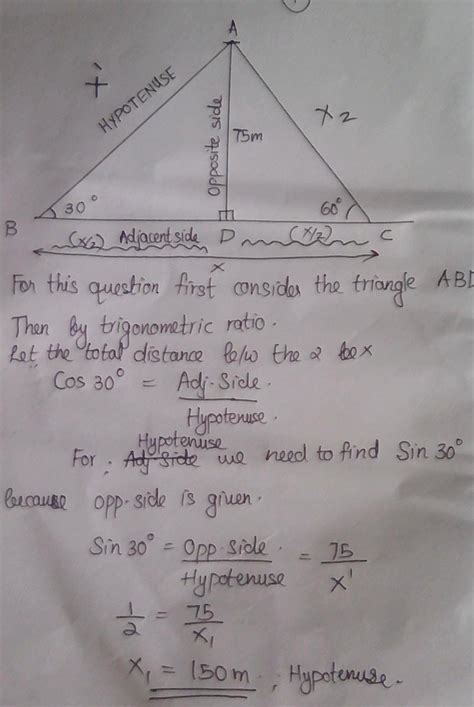 A
X'
HYPOTENUSE
Opposite side
75m
X2
30°
60°
B
(x/2) Adjacent side D (x/2) C
x
For this question first consider the triangle ABD
Then by trigonometric ratio.
Let the total distance b/w the 2 be x
Cos 30° = Adj-Side.
Hypotenuse.
Hypotenuse
For: Adj-Side we need to find Sin 30°
because opp-side is given.
Sin 30° = Opp side. = 75
Hypotenuse X'
1 = 75
2 X1
X1 = 150m. ; Hypotenuse.